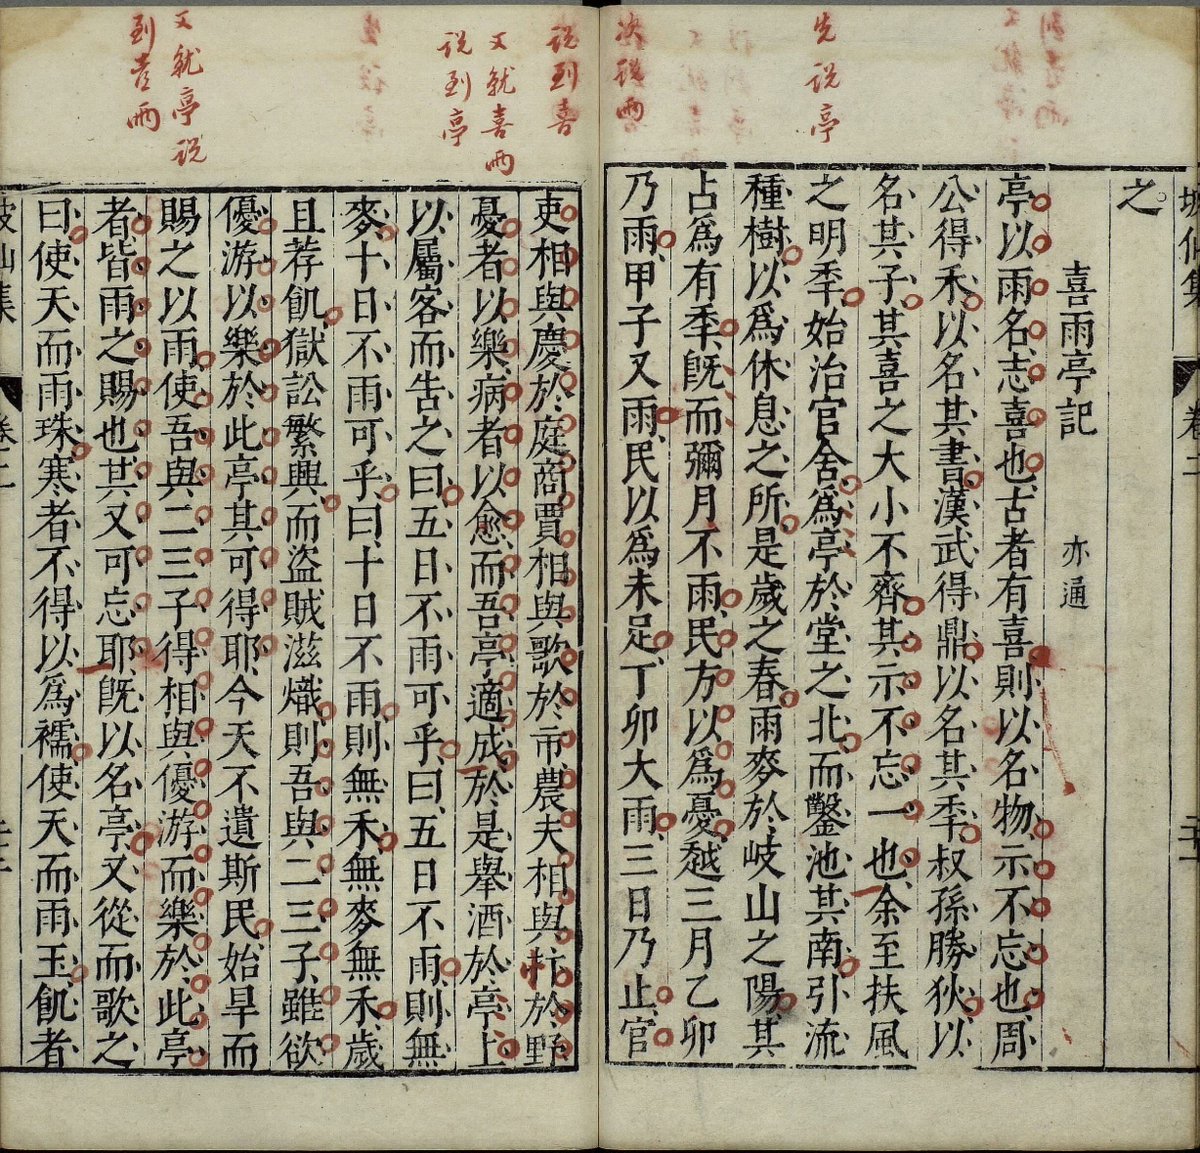 坡仙集 卷二
之
喜雨亭記 亦通
亭以雨名志喜也古者有喜則以名物示不忘也周
公得禾以名其書漢武得鼎以名其秊叔孫勝狄以
名其子其喜之大小不齊其示不忘一也余至扶風
先說亭
之明秊始治官舍爲亭於堂之北而鑿池其南引流
種樹以爲休息之所是歲之春雨麥於岐山之陽其
占爲有秊旣而彌月不雨民方以爲憂越三月乙卯
次說雨
乃雨甲子又雨民以爲未足丁卯大雨三日乃止官
說到喜
吏相與慶於庭商賈相與歌於市農夫相與抃於野
又就喜雨
說到亭
憂者以樂病者以愈而吾亭適成於是舉酒於亭上
以屬客而告之曰五日不雨可乎曰五日不雨則無
麥十日不雨可乎曰十日不雨則無禾無麥無禾歲
且荐飢獄訟繁興而盜賊滋熾則吾與二三子雖欲
優游以樂於此亭其可得耶今天不遺斯民始旱而
又就亭說
到喜雨
賜之以雨使吾與二三子得相與優游而樂於此亭
者皆雨之賜也其又可忘耶旣以名亭又從而歌之
曰使天而雨珠寒者不得以爲襦使天而雨玉飢者
坡仙集 卷二